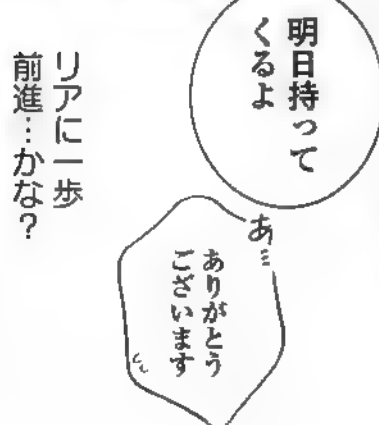 明日持って
くるよ
あ…
ありがとう
ございます
リアに一歩
前進…かな?